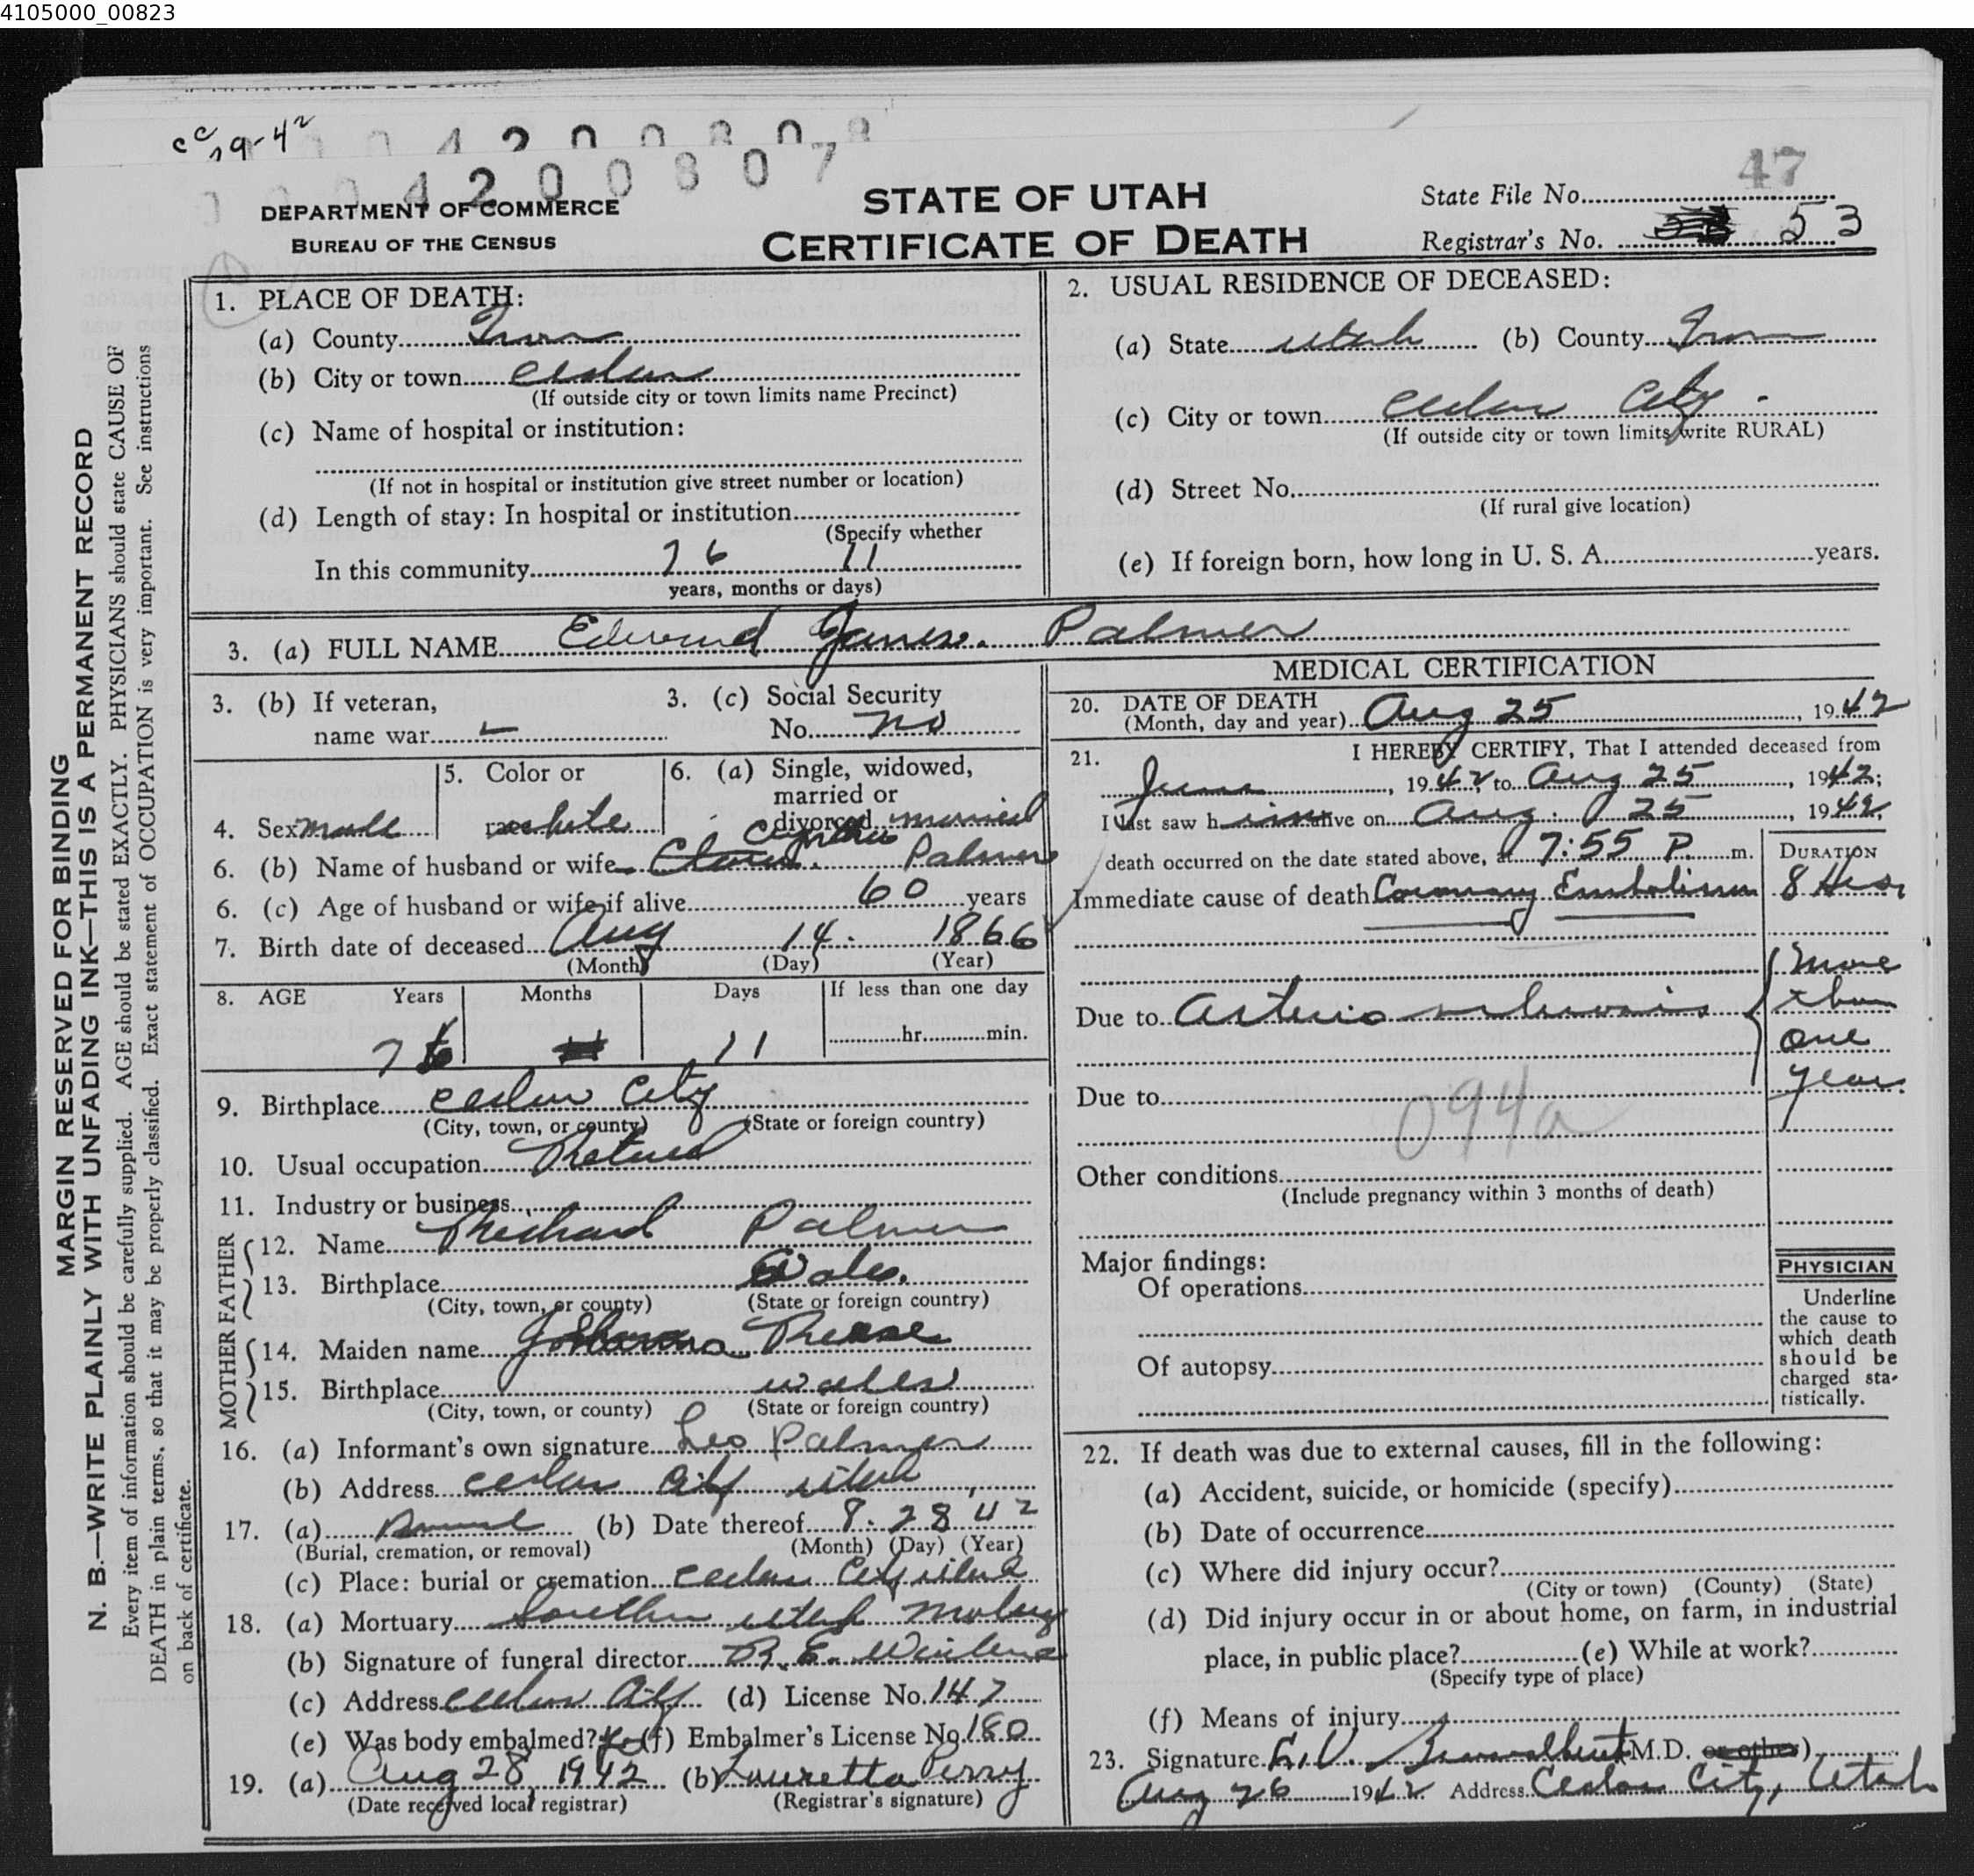 4105000_00823
cc 9-42
0042008078
004200807
47
DEPARTMENT OF COMMERCE
BUREAU OF THE CENSUS
STATE OF UTAH
CERTIFICATE OF DEATH
State File No.
Registrar's No. 53
MARGIN RESERVED FOR BINDING
N. B.—WRITE PLAINLY WITH UNFADING INK—THIS IS A PERMANENT RECORD
Every item of information should be carefully supplied. AGE should be stated EXACTLY. PHYSICIANS should state CAUSE OF
DEATH in plain terms, so that it may be properly classified. Exact statement of OCCUPATION is very important. See instructions
on back of certificate.
1. PLACE OF DEATH:
(a) County Iron
(b) City or town Cedar
(If outside city or town limits name Precinct)
(c) Name of hospital or institution:
(If not in hospital or institution give street number or location)
(d) Length of stay: In hospital or institution
(Specify whether
In this community 76 11
years, months or days)
2. USUAL RESIDENCE OF DECEASED:
(a) State Utah (b) County Iron
(c) City or town Cedar City
(If outside city or town limits write RURAL)
(d) Street No.
(If rural give location)
(e) If foreign born, how long in U. S. A. years.
3. (a) FULL NAME Edward James Palmer
3. (b) If veteran,
name war —
3. (c) Social Security
No. no
4. Sex male
5. Color or
race white
6. (a) Single, widowed,
married or
divorced married
6. (b) Name of husband or wife Palmer
6. (c) Age of husband or wife if alive 60 years
7. Birth date of deceased Aug 14 1866
(Month) (Day) (Year)
8. AGE Years Months Days If less than one day
76 11 hr. min.
9. Birthplace Cedar City
(City, town, or county) (State or foreign country)
10. Usual occupation Retired
11. Industry or business
FATHER
12. Name Richard Palmer
13. Birthplace Wales
(City, town, or county) (State or foreign country)
MOTHER
14. Maiden name Reese
15. Birthplace Wales
(City, town, or county) (State or foreign country)
16. (a) Informant's own signature Leo Palmer
(b) Address Cedar City Utah
17. (a) Burial (b) Date thereof 8. 28 42
(Burial, cremation, or removal) (Month) (Day) (Year)
(c) Place: burial or cremation Cedar City Utah
18. (a) Mortuary Southern Utah
(b) Signature of funeral director R. E.
(c) Address Cedar City (d) License No. 147
(e) Was body embalmed? Yes (f) Embalmer's License No. 180
19. (a) Aug 28, 1942 (b) Louretta Perry
(Date received local registrar) (Registrar's signature)
MEDICAL CERTIFICATION
20. DATE OF DEATH
(Month, day and year) Aug 25, 1942
21. I HEREBY CERTIFY, That I attended deceased from
June, 1942, to Aug 25, 1942;
I last saw him alive on Aug. 25, 1942,
death occurred on the date stated above, at 7:55 P. m.
DURATION
Immediate cause of death Coronary Embolism 8 Hrs.
Due to Arterio sclerosis
More
than
one
year.
Due to
094a
Other conditions
(Include pregnancy within 3 months of death)
Major findings:
Of operations
Of autopsy
PHYSICIAN
Underline
the cause to
which death
should be
charged sta-
tistically.
22. If death was due to external causes, fill in the following:
(a) Accident, suicide, or homicide (specify)
(b) Date of occurrence
(c) Where did injury occur?
(City or town) (County) (State)
(d) Did injury occur in or about home, on farm, in industrial
place, in public place? (e) While at work?
(Specify type of place)
(f) Means of injury
23. Signature M.D. or other)
Aug 26 1942 Address Cedar City, Utah